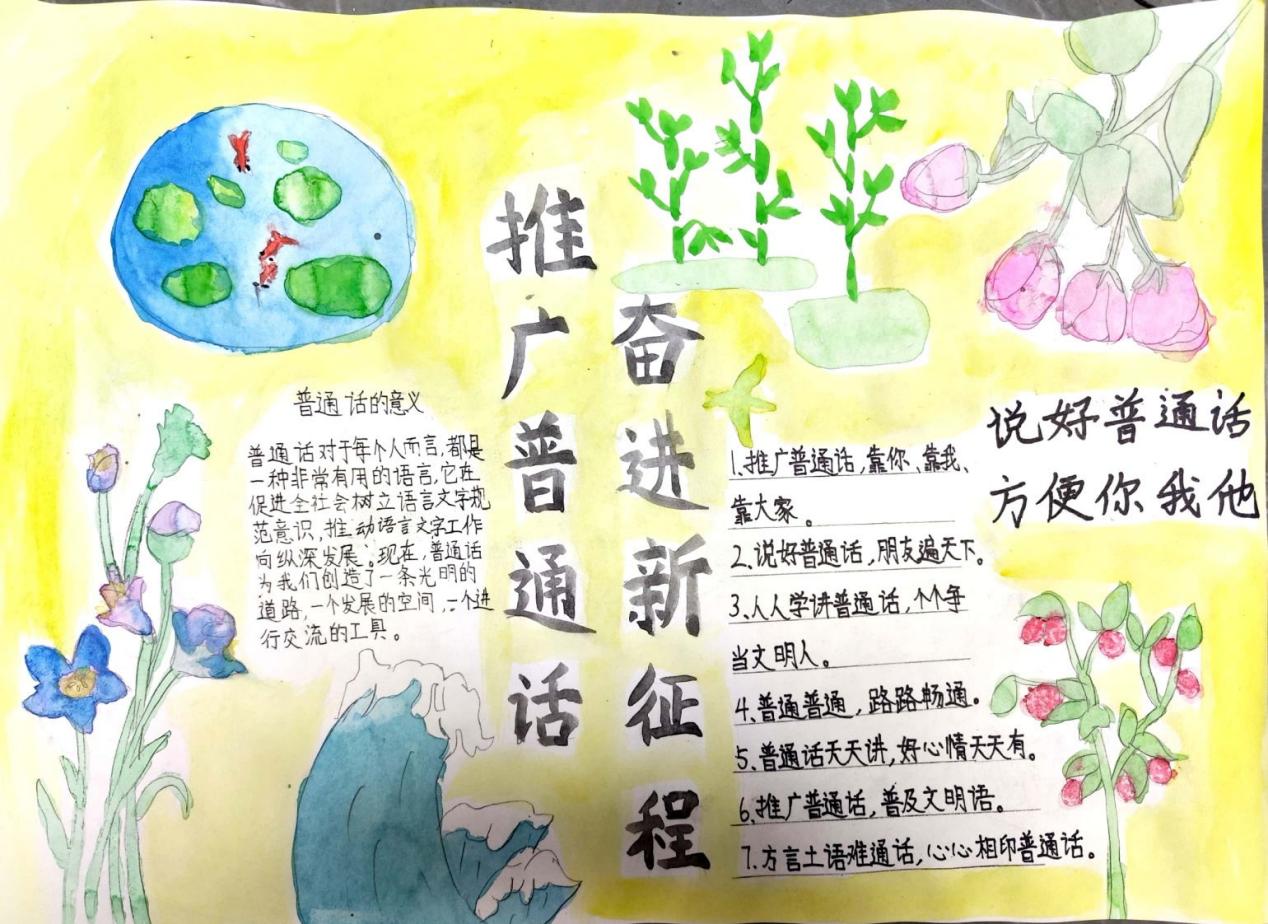 推广普通话
奋进新征程
普通话的意义
普通话对于每个人而言,都是
一种非常有用的语言,它在
促进全社会树立语言文字规
范意识,推动语言文字工作
向纵深发展。现在,普通话
为我们创造了一条光明的
道路,一个发展的空间,一个进
行交流的工具。
1、推广普通话,靠你、靠我、
靠大家。
2、说好普通话,朋友遍天下。
3、人人学讲普通话,个个争
当文明人。
4、普通普通,路路畅通。
5、普通话天天讲,好心情天天有。
6、推广普通话,普及文明语。
7、方言土语难通话,心心相印普通话。
说好普通话
方便你我他